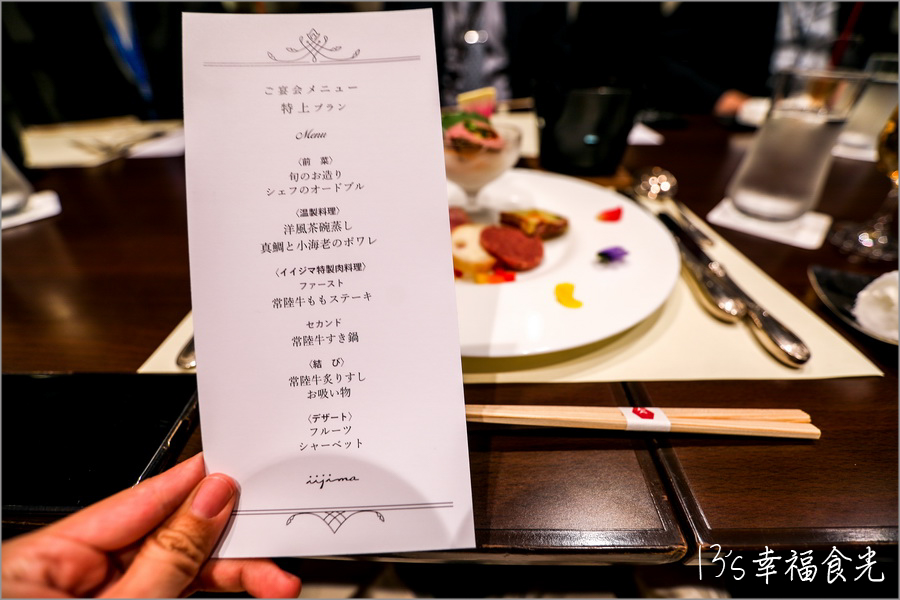 ご宴会メニュー
特上プラン
Menu
〈前　菜〉
旬のお造り
シェフのオードブル
〈温製料理〉
洋風茶碗蒸し
真鯛と小海老のポワレ
〈イイジマ特製肉料理〉
ファースト
常陸牛ももステーキ
セカンド
常陸牛すき鍋
〈結　び〉
常陸牛炙りすし
お吸い物
〈デザート〉
フルーツ
シャーベット
iijima
13's幸福食光